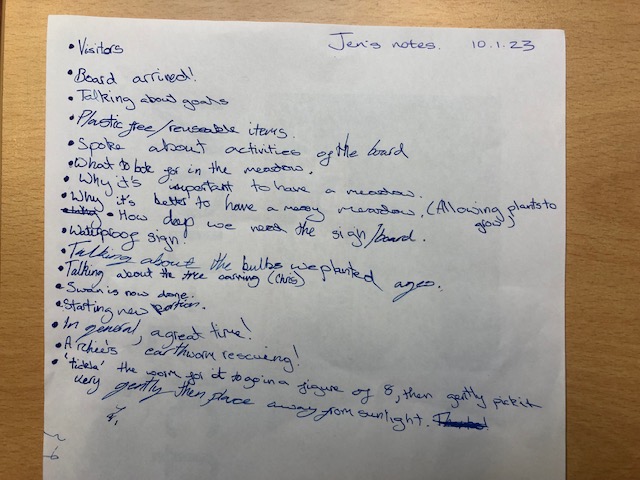 Jen's notes. 10.1.23
• Visitors
• Board arrived!
• Talking about goals
• Plastic free/reuseable items.
• Spoke about activities of the board
• What to look for in the meadow.
• Why it's important to have a meadow.
• Why it's better to have a messy meadow. (Allowing plants to grow)
• How deep we need the sign/board.
• Waterproof sign!
• Talking about the bulbs we planted ages.
• Talking about the tree carving (Chris)
• Swan is now done.
• Starting new portion.
• In general, a great time!
• Archie's earthworm rescuing!
• 'tickle' the worm for it to go in a figure of 8, then gently pick it
very gently then place away from sunlight.